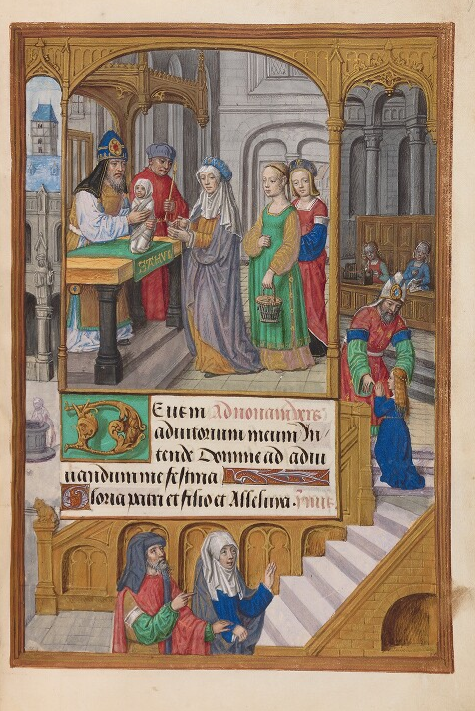 Deus in Ad nonam
adiutorium meum In
tende Domine ad adiu
uandum me festina
Gloria patri et filio et Alleluya.